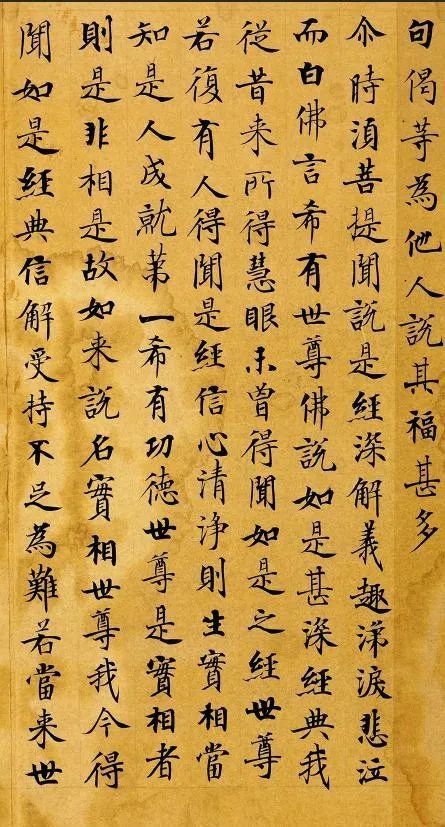 句偈等為他人說其福甚多
尒時湏菩提聞說是經深解義趣涕淚悲泣
而白佛言希有世尊佛說如是甚深經典我
從昔来所得慧眼未曾得聞如是之經世尊
若復有人得聞是經信心清淨則生實相當
知是人成就第一希有功德世尊是實相者
則是非相是故如来說名實相世尊我今得
聞如是經典信解受持不足為難若當来世